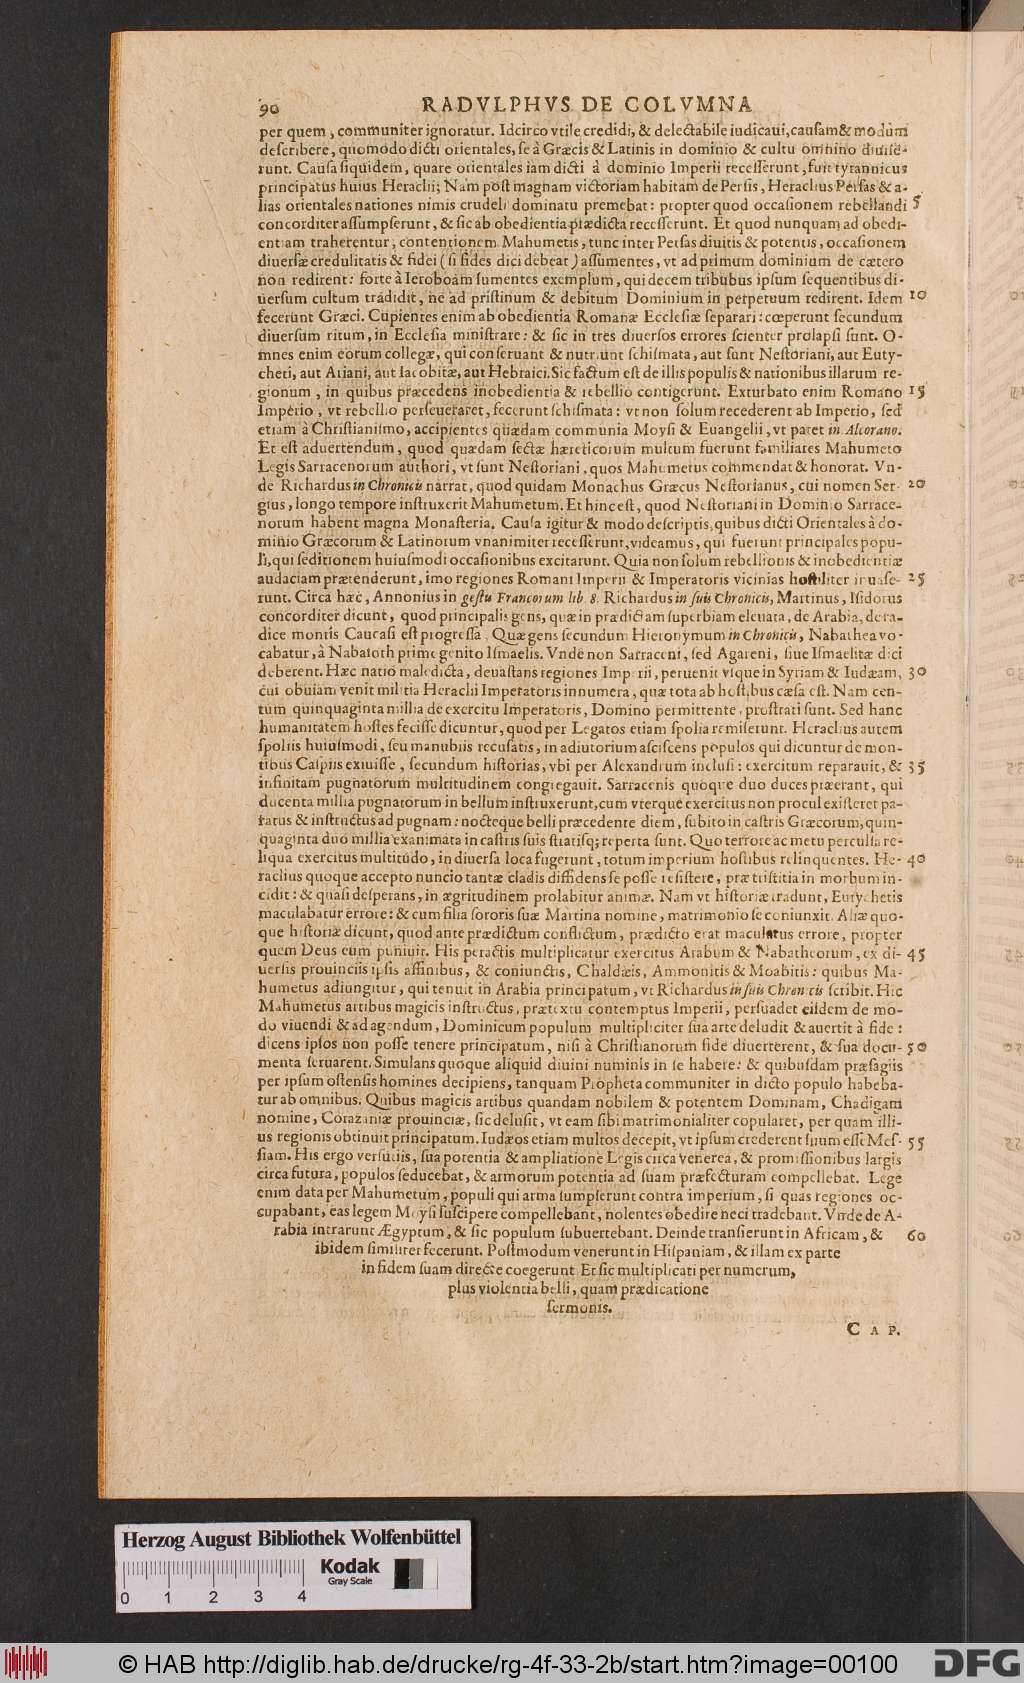 90 RADVLPHVS DE COLVMNA
per quem, communiter ignoratur. Idcirco vtile credidi, & delectabile iudicaui, causam & modum
describere, quomodo dicti orientales, se à Græcis & Latinis in dominio & cultu omnino diuise-
runt. Causa siquidem, quare orientales iam dicti à dominio Imperii recesserunt, fuit tyrannicus
principatus huius Heraclii; Nam post magnam victoriam habitam de Persis, Heraclius Persas & a-
lias orientales nationes nimis crudeli dominatu premebat: propter quod occasionem rebellandi 5
concorditer assumpserunt, & sic ab obedientia prædicta recesserunt. Et quod nunquam ad obedi-
entiam traherentur, contentionem Mahumetis, tunc inter Persas diuitis & potentis, occasionem
diuersæ credulitatis & fidei (si fides dici debeat) assumentes, vt ad primum dominium de cætero
non redirent: forte à Ieroboam sumentes exemplum, qui decem tribubus ipsum sequentibus di-
uersum cultum tradidit, ne ad pristinum & debitum Dominium in perpetuum redirent. Idem 10
fecerunt Græci. Cupientes enim ab obedientia Romanæ Ecclesiæ separari: cœperunt secundum
diuersum ritum, in Ecclesia ministrare: & sic in tres diuersos errores scienter prolapsi sunt. O-
mnes enim eorum collegæ, qui conseruant & nutriunt schismata, aut sunt Nestoriani, aut Euty-
cheti, aut Ariani, aut Iacobitæ, aut Hebraici. Sic factum est de illis populis & nationibus illarum re-
gionum, in quibus præcedens inobedientia & rebellio contigerunt. Exturbato enim Romano 15
Imperio, vt rebellio perseueraret, fecerunt schismata: vt non solum recederent ab Imperio, sed
etiam à Christianismo, accipientes quædam communia Moysi & Euangelii, vt patet in Alcorano.
Et est aduertendum, quod quædam sectæ hæreticorum multum fuerunt familiares Mahumeto
Legis Sarracenorum authori, vt sunt Nestoriani, quos Mahumetus commendat & honorat. Vn-
de Richardus in Chronicis narrat, quod quidam Monachus Græcus Nestorianus, cui nomen Ser- 20
gius, longo tempore instruxerit Mahumetum. Et hinc est, quod Nestoriani in Dominio Sarrace-
norum habent magna Monasteria. Causa igitur & modo descriptis, quibus dicti Orientales à do-
minio Græcorum & Latinorum vnanimiter recesserunt, videamus, qui fuerunt principales popu-
li, qui seditionem huiusmodi occasionibus excitarunt. Quia non solum rebellionis & inobedientiæ
audaciam prætenderunt, imo regiones Romani Imperii & Imperatoris vicinias hostiliter inuase- 25
runt. Circa hæc, Annonius in gestu Francorum lib. 8. Richardus in suis Chronicis, Martinus, Isidorus
concorditer dicunt, quod principalis gens, quæ in prædictam superbiam eleuata, de Arabia, de ra-
dice montis Caucasi est progressa. Quæ gens secundum Hieronymum in Chronicis, Nabathea vo-
cabatur, à Nabaioth primogenito Ismaelis. Vnde non Sarraceni, sed Agareni, siue Ismaelitæ dici
deberent. Hæc natio maledicta, deuastans regiones Imperii, peruenit vsque in Syriam & Iudæam, 30
cui obuiam venit militia Heraclii Imperatoris innumera, quæ tota ab hostibus cæsa est. Nam cen-
tum quinquaginta millia de exercitu Imperatoris, Domino permittente, prostrati sunt. Sed hanc
humanitatem hostes fecisse dicuntur, quod per Legatos etiam spolia remiserunt. Heraclius autem
spoliis huiusmodi, seu manubiis recusatis, in adiutorium asciscens populos qui dicuntur de mon-
tibus Caspiis exiuisse, secundum historias, vbi per Alexandrum inclusi: exercitum reparauit, & 35
infinitam pugnatorum multitudinem congregauit. Sarracenis quoque duo duces præerant, qui
ducenta millia pugnatorum in bellum instruxerunt, cum vterque exercitus non procul existeret pa-
ratus & instructus ad pugnam: nocteque belli præcedente diem, subito in castris Græcorum, quin-
quaginta duo millia exanimata in castris suis stratisq; reperta sunt. Quo terrore ac metu perculsa re-
liqua exercitus multitudo, in diuersa loca fugerunt, totum imperium hostibus relinquentes. He- 40
raclius quoque accepto nuncio tantæ cladis diffidens se posse resistere, præ tristitia in morbum in-
cidit: & quasi desperans, in ægritudinem prolabitur animæ. Nam vt historiæ tradunt, Eutychetis
maculabatur errore: & cum filia sororis suæ Martina nomine, matrimonio se coniunxit. Aliæ quo-
que historiæ dicunt, quod ante prædictum conflictum, prædicto erat maculatus errore, propter
quem Deus eum puniuit. His peractis multiplicatur exercitus Arabum & Nabatheorum, ex di- 45
uersis prouinciis ipsis affinibus, & coniunctis, Chaldæis, Ammonitis & Moabitis: quibus Ma-
humetus adiungitur, qui tenuit in Arabia principatum, vt Richardus in suis Chronicis scribit. Hic
Mahumetus artibus magicis instructus, prætextu contemptus Imperii, persuadet eisdem de mo-
do viuendi & ad agendum, Dominicum populum multipliciter sua arte deludit & auertit à fide:
dicens ipsos non posse tenere principatum, nisi à Christianorum fide diuerterent, & sua docu- 50
menta seruarent. Simulans quoque aliquid diuini numinis in se habere: & quibusdam præsagiis
per ipsum ostensis homines decipiens, tanquam Propheta communiter in dicto populo habeba-
tur ab omnibus. Quibus magicis artibus quandam nobilem & potentem Dominam, Chadigam
nomine, Corazaniæ prouinciæ, sic delusit, vt eam sibi matrimonialiter copularet, per quam illi-
us regionis obtinuit principatum. Iudæos etiam multos decepit, vt ipsum crederent suum esse Mes- 55
siam. His ergo versutiis, sua potentia & ampliatione Legis circa venerea, & promissionibus largis
circa futura, populos seducebat, & armorum potentia ad suam præfecturam compellebat. Lege
enim data per Mahumetum, populi qui arma sumpserunt contra imperium, si quas regiones oc-
cupabant, eas legem Moysi suscipere compellebant, nolentes obedire neci tradebant. Vnde de A-
rabia intrarunt Ægyptum, & sic populum subuertebant. Deinde transierunt in Africam, & 60
ibidem similiter fecerunt. Postmodum venerunt in Hispaniam, & illam ex parte
in fidem suam directe coegerunt. Et sic multiplicati per numerum,
plus violentia belli, quam prædicatione
sermonis.
CAP.
Herzog August Bibliothek Wolfenbüttel
Kodak
Gray Scale
0 1 2 3 4
© HAB http://diglib.hab.de/drucke/rg-4f-33-2b/start.htm?image=00100
DFG